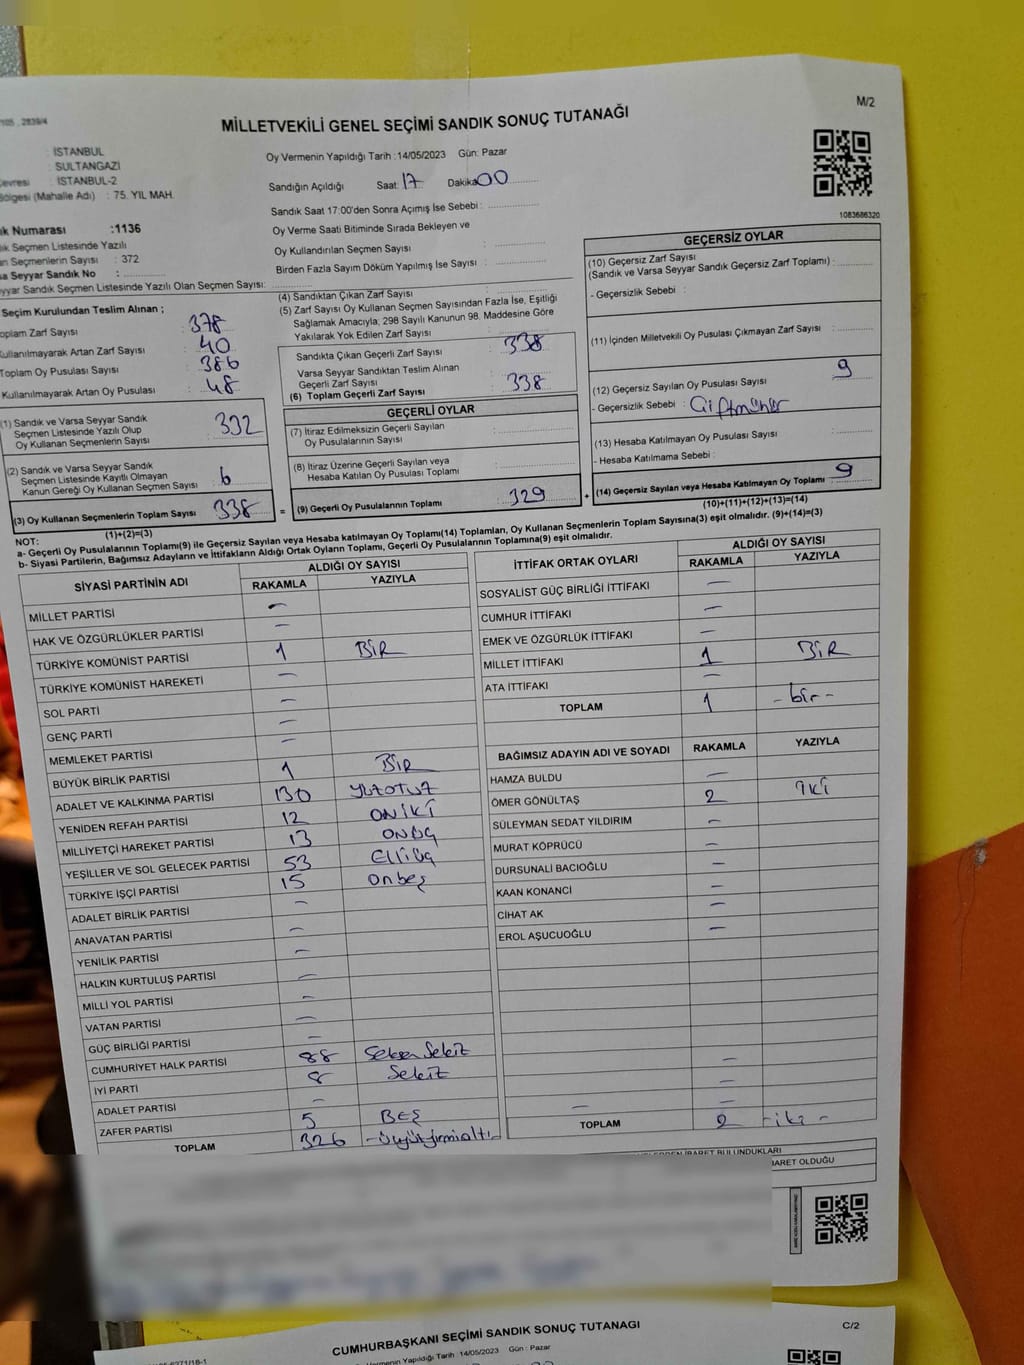 M/2
105 , 2839/4
MİLLETVEKİLİ GENEL SEÇİMİ SANDIK SONUÇ TUTANAĞI
: İSTANBUL
: SULTANGAZİ
: İSTANBUL-2
(Mahalle Adı) : 75. YIL MAH.
Oy Vermenin Yapıldığı Tarih :14/05/2023 Gün: Pazar
Sandığın Açıldığı Saat: 17 Dakika 00
Sandık Saat 17:00'den Sonra Açımış İse Sebebi :
Oy Verme Saati Bitiminde Sırada Bekleyen ve
Oy Kullandırılan Seçmen Sayısı :
Birden Fazla Sayım Döküm Yapılmış İse Sayısı :
1083686320
Numarası :1136
Seçmen Listesinde Yazılı
Seçmenlerin Sayısı : 372
Seyyar Sandık No :
Seyyar Sandık Seçmen Listesinde Yazılı Olan Seçmen Sayısı:
Seçim Kurulundan Teslim Alınan ;
Toplam Zarf Sayısı : 378
Kullanılmayarak Artan Zarf Sayısı : 40
Toplam Oy Pusulası Sayısı : 386
Kullanılmayarak Artan Oy Pusulası : 48
(1) Sandık ve Varsa Seyyar Sandık
Seçmen Listesinde Yazılı Olup
Oy Kullanan Seçmenlerin Sayısı : 332
(2) Sandık ve Varsa Seyyar Sandık
Seçmen Listesinde Kayıtlı Olmayan
Kanun Gereği Oy Kullanan Seçmen Sayısı : 6
(3) Oy Kullanan Seçmenlerin Toplam Sayısı 338
(1)+(2)=(3)
(4) Sandıktan Çıkan Zarf Sayısı
(5) Zarf Sayısı Oy Kullanan Seçmen Sayısından Fazla İse, Eşitliği
Sağlamak Amacıyla; 298 Sayılı Kanunun 98. Maddesine Göre
Yakılarak Yok Edilen Zarf Sayısı :
Sandıkta Çıkan Geçerli Zarf Sayısı : 338
Varsa Seyyar Sandıktan Teslim Alınan
Geçerli Zarf Sayısı :
(6) Toplam Geçerli Zarf Sayısı : 338
GEÇERLİ OYLAR
(7) İtiraz Edilmeksizin Geçerli Sayılan
Oy Pusulalarının Sayısı :
(8) İtiraz Üzerine Geçerli Sayılan veya
Hesaba Katılan Oy Pusulası Toplamı :
= (9) Geçerli Oy Pusulalarının Toplamı : 329 +
GEÇERSİZ OYLAR
(10) Geçersiz Zarf Sayısı
(Sandık ve Varsa Seyyar Sandık Geçersiz Zarf Toplamı) :
- Geçersizlik Sebebi :
(11) İçinden Milletvekili Oy Pusulası Çıkmayan Zarf Sayısı :
(12) Geçersiz Sayılan Oy Pusulası Sayısı : 9
- Geçersizlik Sebebi : Çift mühür
(13) Hesaba Katılmayan Oy Pusulası Sayısı :
- Hesaba Katılmama Sebebi :
(14) Geçersiz Sayılan veya Hesaba Katılmayan Oy Toplamı : 9
(10)+(11)+(12)+(13)=(14)
NOT:
a- Geçerli Oy Pusulalarının Toplamı(9) ile Geçersiz Sayılan veya Hesaba Katılmayan Oy Toplamı(14) Toplamları, Oy Kullanan Seçmenlerin Toplam Sayısına(3) eşit olmalıdır. (9)+(14)=(3)
b- Siyasi Partilerin, Bağımsız Adayların ve İttifakların Aldığı Ortak Oyların Toplamı, Geçerli Oy Pusulalarının Toplamına(9) eşit olmalıdır.
SİYASİ PARTİNİN ADI ALDIĞI OY SAYISI
RAKAMLA YAZIYLA
MİLLET PARTİSİ –
HAK VE ÖZGÜRLÜKLER PARTİSİ –
TÜRKİYE KOMÜNİST PARTİSİ 1 BİR
TÜRKİYE KOMÜNİST HAREKETİ –
SOL PARTİ –
GENÇ PARTİ –
MEMLEKET PARTİSİ –
BÜYÜK BİRLİK PARTİSİ 1 BİR
ADALET VE KALKINMA PARTİSİ 130 YÜZOTUZ
YENİDEN REFAH PARTİSİ 12 ONİKİ
MİLLİYETÇİ HAREKET PARTİSİ 13 ONÜÇ
YEŞİLLER VE SOL GELECEK PARTİSİ 53 Elliüç
TÜRKİYE İŞÇİ PARTİSİ 15 onbeş
ADALET BİRLİK PARTİSİ –
ANAVATAN PARTİSİ –
YENİLİK PARTİSİ –
HALKIN KURTULUŞ PARTİSİ –
MİLLİ YOL PARTİSİ –
VATAN PARTİSİ –
GÜÇ BİRLİĞİ PARTİSİ –
CUMHURİYET HALK PARTİSİ 88 Seksen Sekiz
İYİ PARTİ 8 Sekiz
ADALET PARTİSİ –
ZAFER PARTİSİ 5 BEŞ
TOPLAM 326 -üçyüzyirmialtı
İTTİFAK ORTAK OYLARI ALDIĞI OY SAYISI
RAKAMLA YAZIYLA
SOSYALİST GÜÇ BİRLİĞİ İTTİFAKI –
CUMHUR İTTİFAKI –
EMEK VE ÖZGÜRLÜK İTTİFAKI –
MİLLET İTTİFAKI 1 BİR
ATA İTTİFAKI –
TOPLAM 1 -bir-
BAĞIMSIZ ADAYIN ADI VE SOYADI RAKAMLA YAZIYLA
HAMZA BULDU –
ÖMER GÖNÜLTAŞ 2 İKİ
SÜLEYMAN SEDAT YILDIRIM –
MURAT KÖPRÜCÜ –
DURSUNALİ BACIOĞLU –
KAAN KONANCİ –
CİHAT AK –
EROL AŞUCUOĞLU –
TOPLAM 2 -iki-
BULUNDUKLARI
İBARET OLDUĞU
CUMHURBAŞKANI SEÇİMİ SANDIK SONUÇ TUTANAĞI
C/2
Vermenin Yapıldığı Tarih :14/05/2023 Gün : Pazar